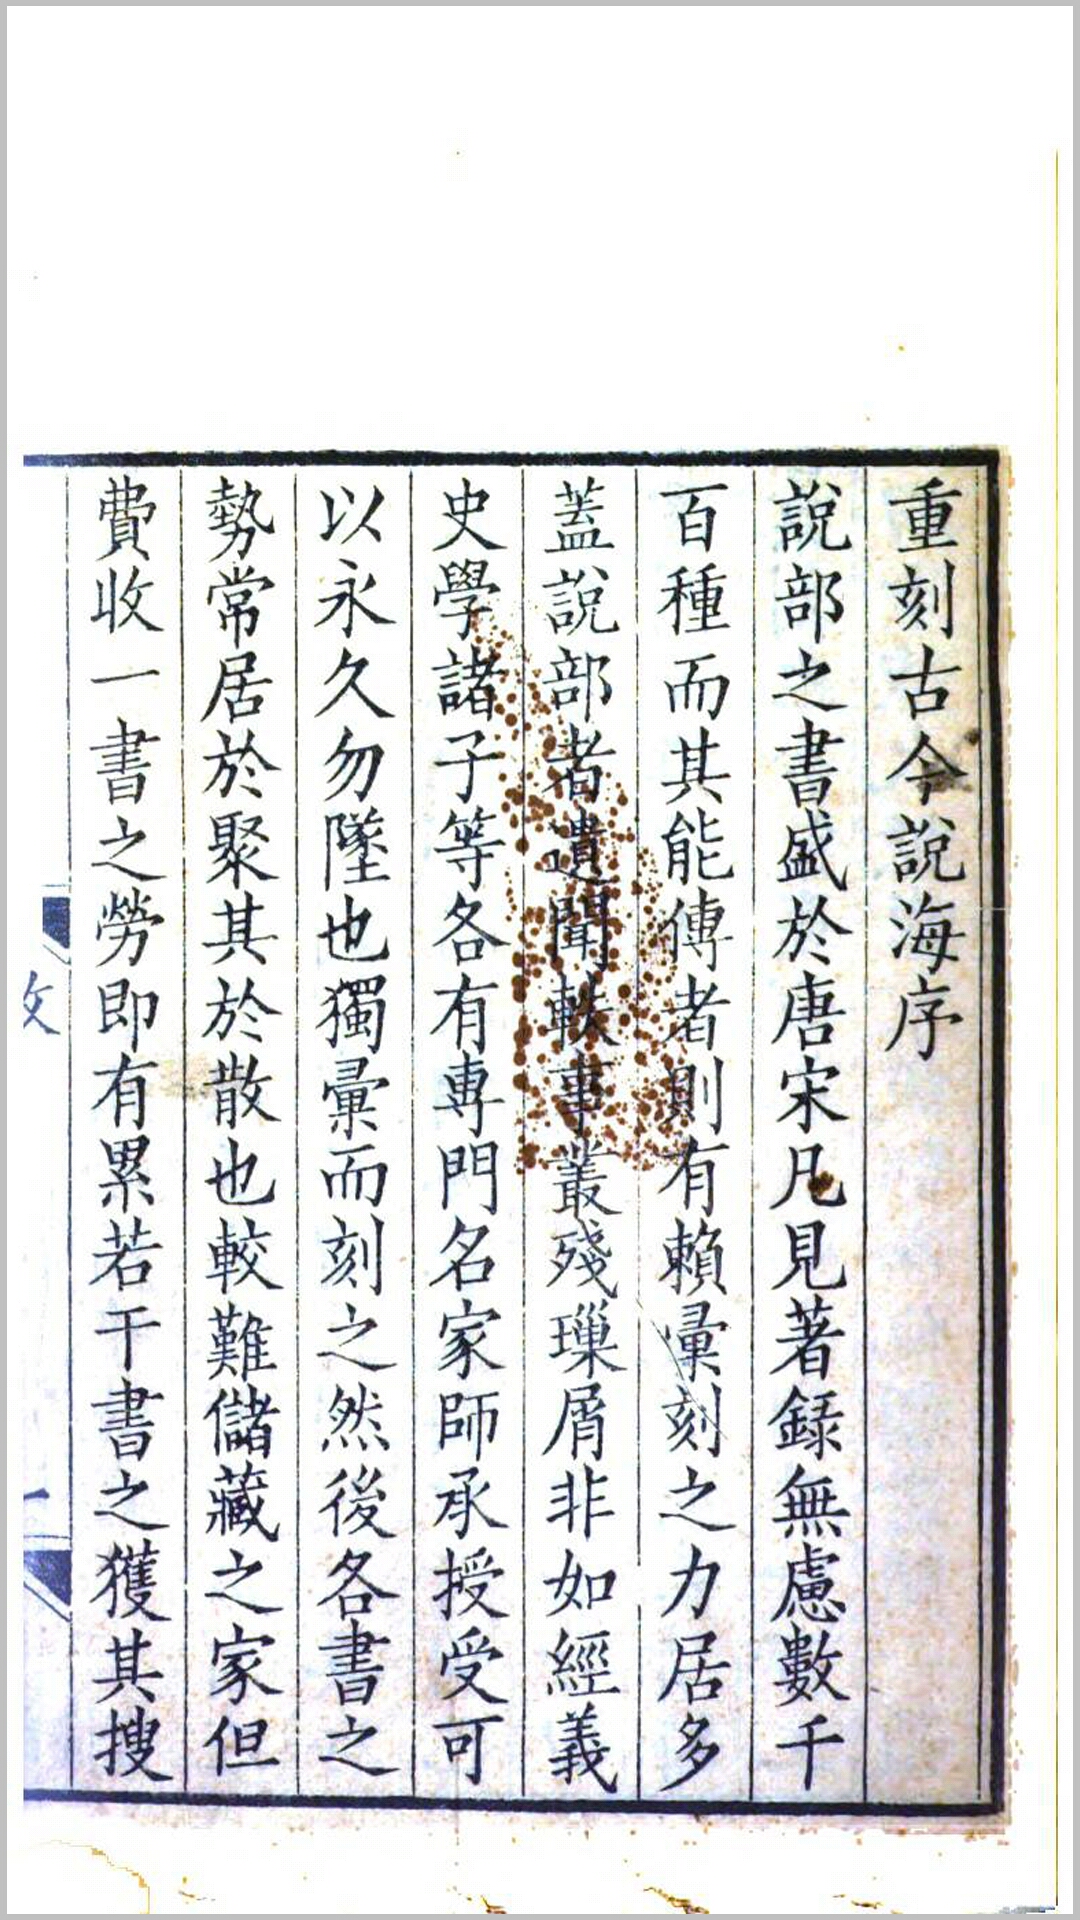 重刻古今說海序
說部之書盛於唐宋凡見著錄無慮數千
百種而其能傳者則有賴彚刻之力居多
蓋說部者遺聞軼事叢殘璅屑非如經義
史學諸子等各有專門名家師承授受可
以永久勿墜也獨彙而刻之然後各書之
勢常居於聚其於散也較難儲藏之家但
費收一書之勞即有累若干書之獲其搜